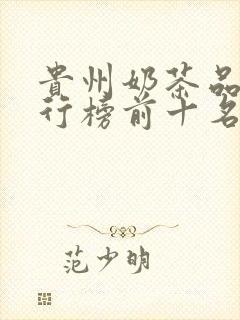 貴州奶茶品
行榜前十名
范少明